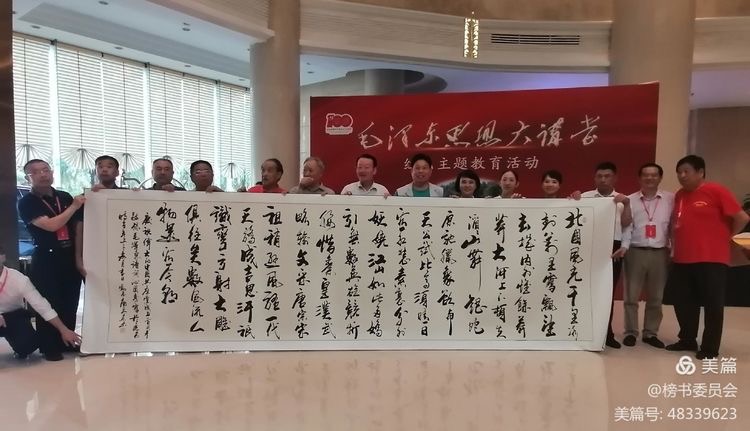 100
毛泽东思想大讲堂
主题教育活动
北国风光千里冰
封万里雪飘望
长城内外惟余莽
莽大河上下顿失
滔滔山舞银蛇
原驰蜡象欲与
天公试比高须晴日
看红装素裹分外
妖娆江山如此多娇
引无数英雄竞折
腰惜秦皇汉武
略输文采唐宗宋
祖稍逊风骚一代
天骄成吉思汗只
识弯弓射大雕
俱往矣数风流人
物还看今朝
美篇
@榜书委员会
美篇号: 48339623